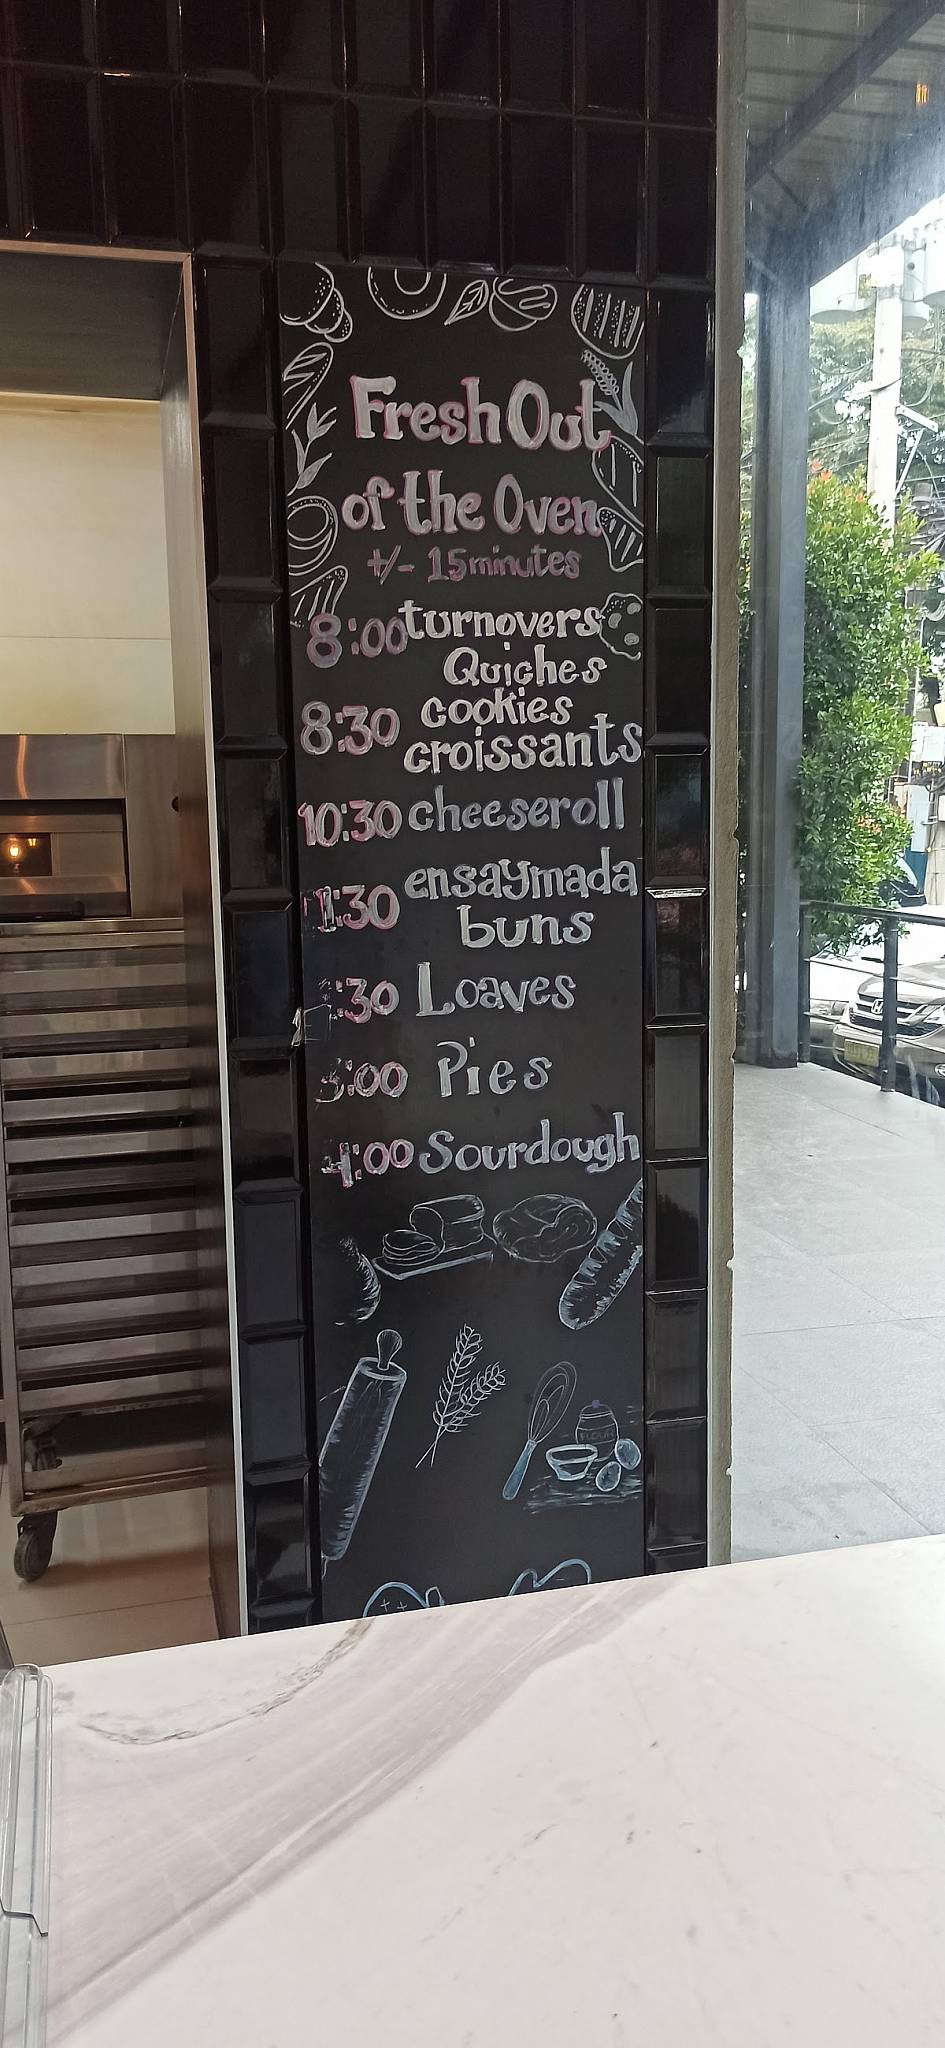 Fresh Out
of the Oven
+/- 15 minutes
8:00 turnovers
Quiches
8:30 cookies
croissants
10:30 cheeseroll
1:30 ensaymada
buns
:30 Loaves
3:00 Pies
4:00 Sourdough
FLOUR